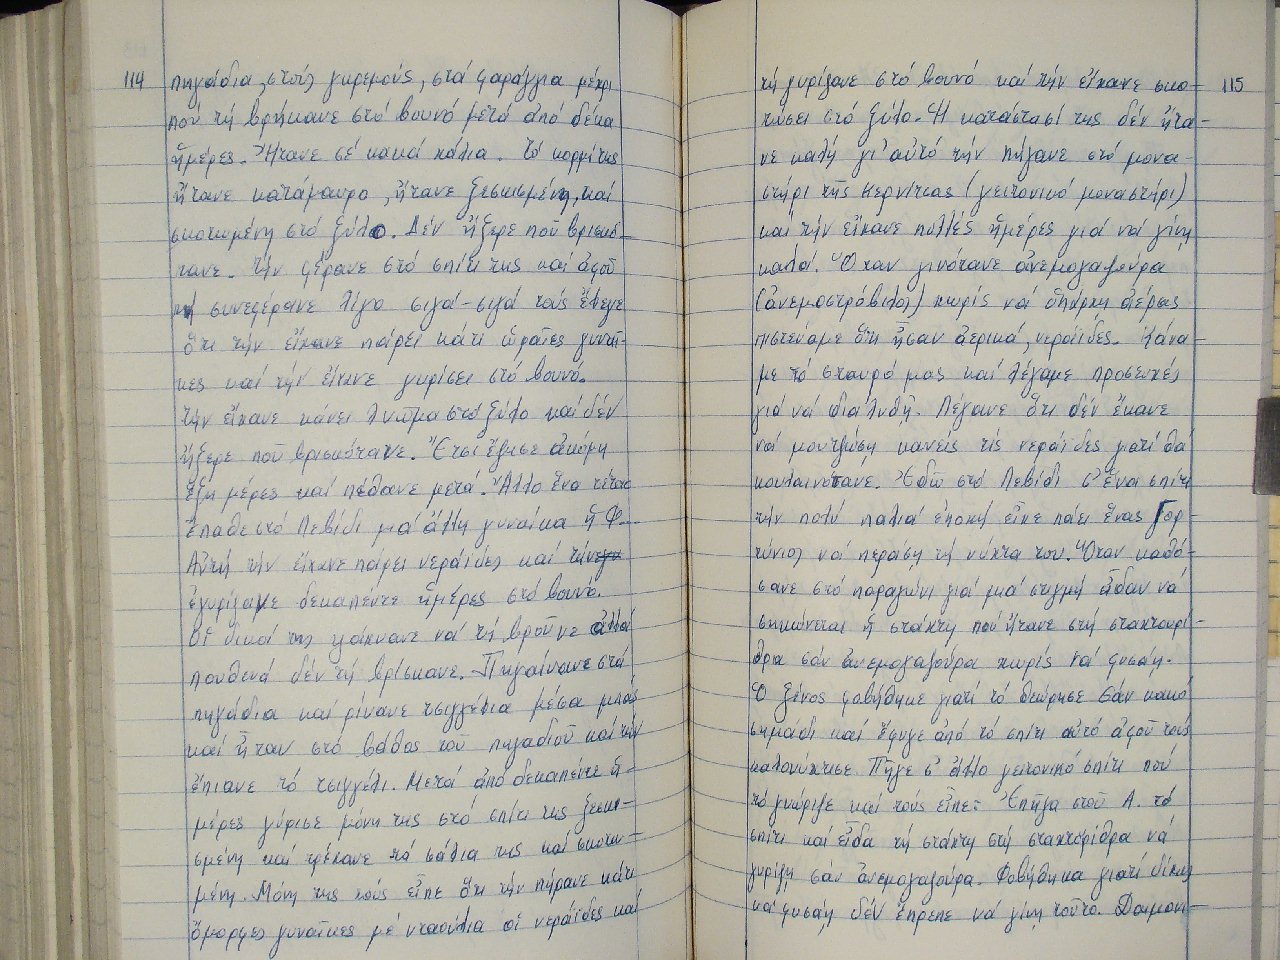 114
πηγάδια, στούς γκρεμούς, στά φαράγγια μέχρι
πού τή βρήκανε στό βουνό μετά ἀπό δέκα
ἡμέρες. Ἤτανε σέ κακά χάλια. Τό κορμί της
ἤτανε κατάμαυρο, ἤτανε ξεσκισμένη, καί
σκοτωμένη στό ξύλο. Δέν ἤξερε ποῦ βρισκό-
τανε. Τήν φέρανε στό σπίτι της καί ἀφοῦ
συνεφέρανε λίγο σιγά-σιγά τούς ἔλεγε
ὅτι τήν εἴχανε πάρει κάτι ὡραῖες γυναῖ-
κες καί τήν εἴχανε γυρίσει στό βουνό.
Τήν εἴχανε κάνει λυῶμα στό ξύλο καί δέν
ἤξερε ποῦ βρισκότανε. Ἔτσι ἔζησε ἀκόμη
ἕξη μέρες καί πέθανε μετά. Ἄλλο ἕνα τέτοιο
ἔπαθε στό Λεβίδι μιά ἄλλη γυναίκα ἡ Φ...
Αὐτή τήν εἴχανε πάρει νεράιδες καί τήν
ἐγυρίζανε δεκαπέντε ἡμέρες στό βουνό.
Οἱ δικοί της ψάχνανε νά τή βροῦνε ἀλλά
πουθενά δέν τή βρίσκανε. Πηγαίνανε στά
πηγάδια καί ρίνανε τσιγγέλια μέσα μπάς
καί ἦταν στό βάθος τοῦ πηγαδιοῦ καί τήν
ἔπιανε τό τσιγγέλι. Μετά ἀπό δεκαπέντε ἡ-
μέρες γύρισε μόνη της στό σπίτι της ξεσκι-
σμένη καί τρέχανε τά σάλια της καί σκοτω-
μένη. Μόνη της τούς εἶπε ὅτι τήν πήρανε κάτι
ὄμορφες γυναῖκες μέ νταούλια οἱ νεράϊδες καί
115
τή γυρίζανε στό βουνό καί τήν εἴχανε σκο-
τώσει στό ξύλο. Ἡ κατάστασή της δέν ἤτα-
νε καλή γι' αὐτό τήν πήγανε στό μονα-
στήρι τῆς Κερνίτσας (γειτονικό μοναστήρι)
καί τήν εἴχανε πολλές ἡμέρες γιά νά γίνη
καλά. Ὅταν γινότανε ἀνεμογαζούρα
(ἀνεμοστρόβιλος) χωρίς νά ὑπάρχη ἀέρας
πιστεύαμε ὅτι ἦσαν ἀερικά, νεράιδες. Κάνα-
με τό σταυρό μας καί λέγαμε προσευχές
γιά νά διαλυθῆ. Λέγανε ὅτι δέν ἔκανε
νά μουτζώση κανείς τίς νεράιδες γιατί θά
κουλαινότανε. Ἐδῶ στό Λεβίδι σ' ἕνα σπίτι
τήν πολύ παλιά ἐποχή εἶχε πάει ἕνας Γορ-
τύνιος νά περάση τή νύχτα του. Ὅταν καθό-
σανε στό παραγώνι γιά μιά στιγμή εἶδαν νά
σηκώνεται ἡ στάχτη πού ἤτανε στή σταχτουρί-
θρα σάν ἀνεμογαζούρα χωρίς νά φυσάη.
Ὁ ξένος φοβήθηκε γιατί τό θεώρησε σάν κακό
σημάδι καί ἔφυγε ἀπό τό σπίτι αὐτό ἀφοῦ τούς
καλονύχτισε. Πῆγε σ' ἄλλο γειτονικό σπίτι πού
τό γνώριζε καί τούς εἶπε: Ἐπῆγα στοῦ Α. τό
σπίτι καί εἶδα τή στάχτη στή σταχτορίθρα νά
γυρίζη σάν ἀνεμογαζούρα. Φοβήθηκα γιατί δίχως
νά φυσάη δέν ἔπρεπε νά γίνη τοῦτο. Δαιμονι-